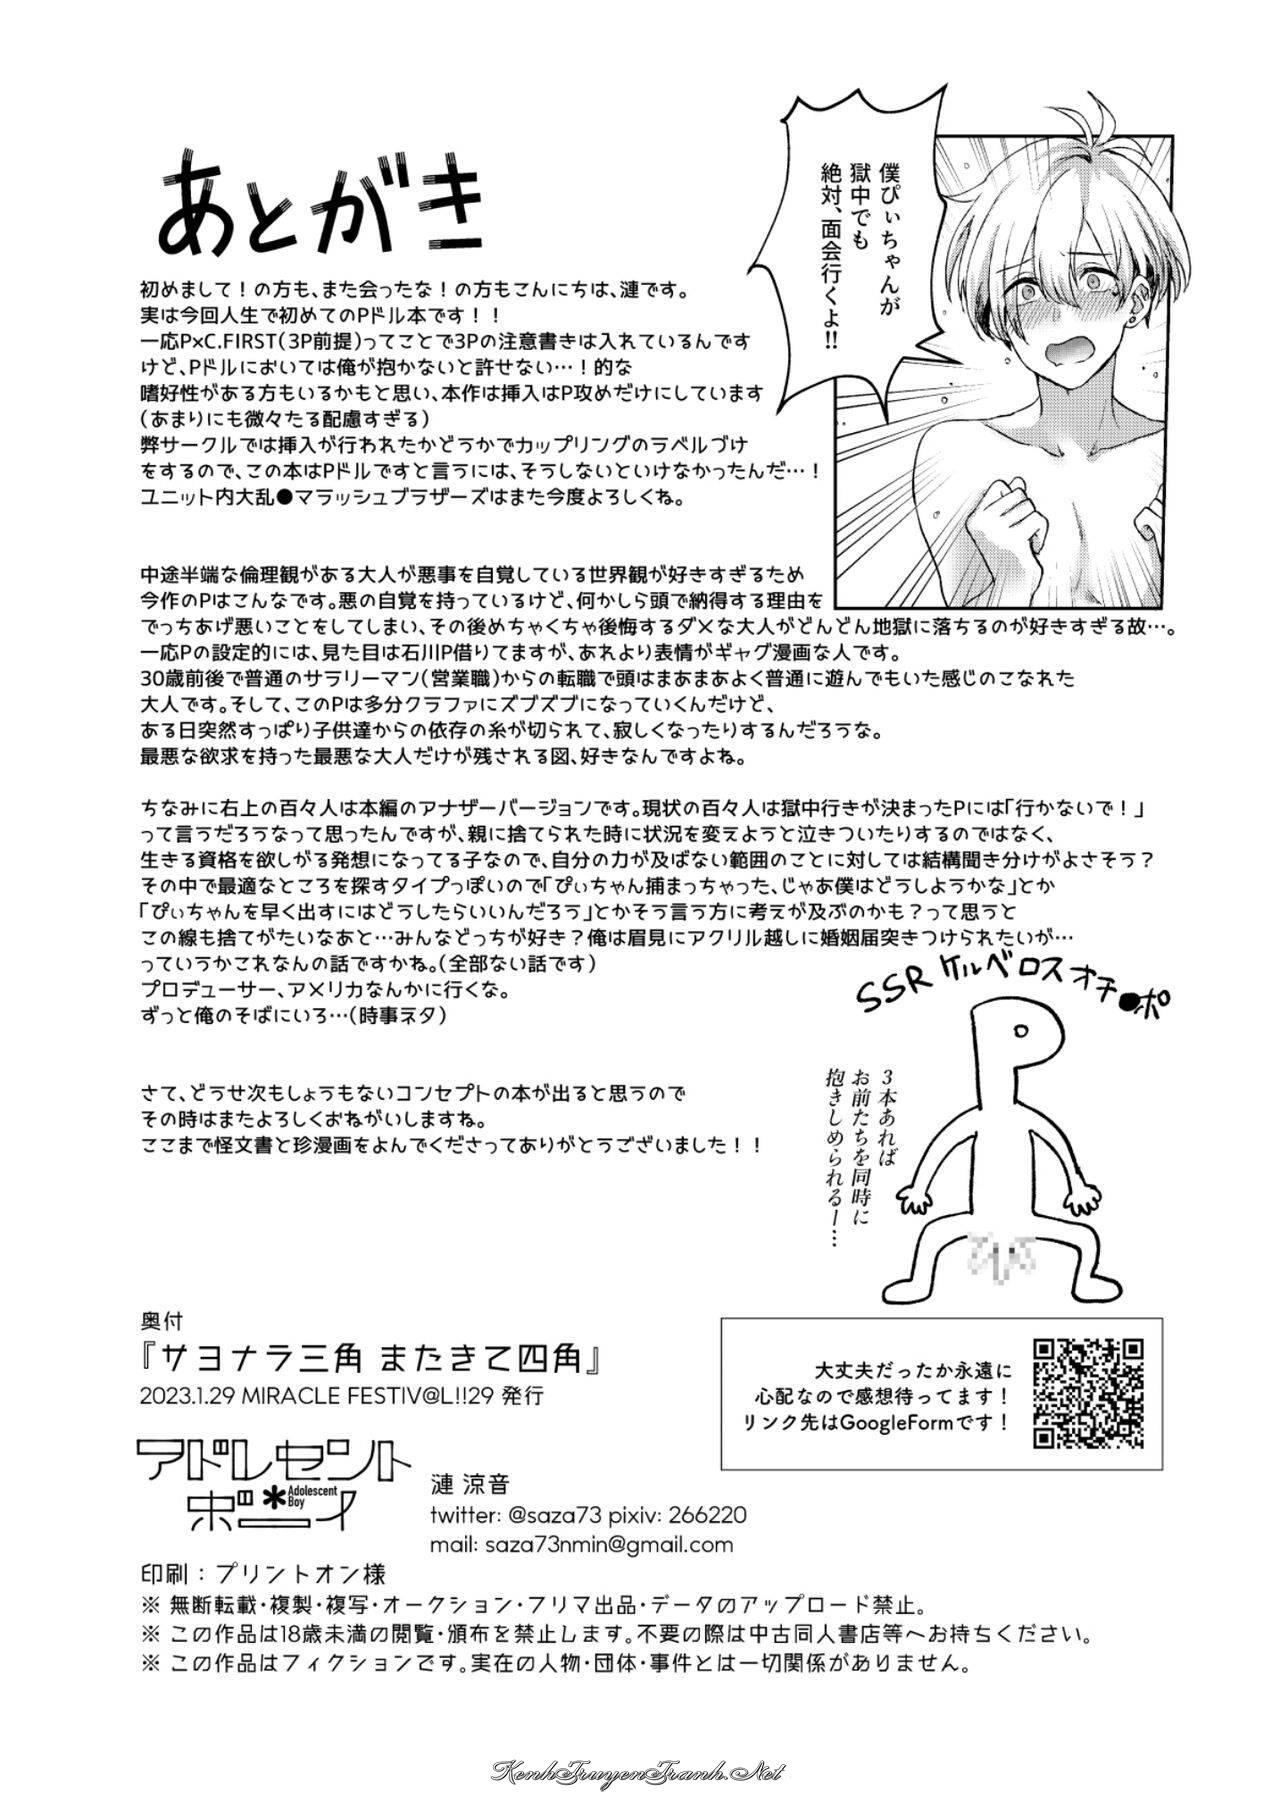 あとがき
僕ぴぃちゃんが
獄中でも
絶対、面会行くよ!!
初めまして！の方も、また会ったな！の方もこんにちは、漣です。
実は今回人生で初めてのPドル本です！！
一応P×C.FIRST(3P前提)ってことで3Pの注意書きは入れているんです
けど、Pドルにおいては俺が抱かないと許せない…！的な
嗜好性がある方もいるかもと思い、本作は挿入はP攻めだけにしています
(あまりにも微々たる配慮すぎる)
弊サークルでは挿入が行われたかどうかでカップリングのラベルづけ
をするので、この本はPドルですと言うには、そうしないといけなかったんだ…！
ユニット内大乱●マラッシュブラザーズはまた今度よろしくね。
中途半端な倫理観がある大人が悪事を自覚している世界観が好きすぎるため
今作のPはこんなです。悪の自覚を持っているけど、何かしら頭で納得する理由を
でっちあげ悪いことをしてしまい、その後めちゃくちゃ後悔するダメな大人がどんどん地獄に落ちるのが好きすぎる故…。
一応Pの設定的には、見た目は石川P借りてますが、あれより表情がギャグ漫画な人です。
30歳前後で普通のサラリーマン(営業職)からの転職で頭はまあまあよく普通に遊んでもいた感じのこなれた
大人です。そして、このPは多分クラファにズブズブになっていくんだけど、
ある日突然すっぱり子供達からの依存の糸が切られて、寂しくなったりするんだろうな。
最悪な欲求を持った最悪な大人だけが残される図、好きなんですよね。
ちなみに右上の百々人は本編のアナザーバージョンです。現状の百々人は獄中行きが決まったPには「行かないで！」
って言うだろうなって思ったんですが、親に捨てられた時に状況を変えようと泣きついたりするのではなく、
生きる資格を欲しがる発想になってる子なので、自分の力が及ばない範囲のことに対しては結構聞き分けがよさそう？
その中で最適なところを探すタイプっぽいので「ぴぃちゃん捕まっちゃった、じゃあ僕はどうしようかな」とか
「ぴぃちゃんを早く出すにはどうしたらいいんだろう」とかそう言う方に考えが及ぶのかも？って思うと
この線も捨てがたいなあと…みんなどっちが好き？俺は眉見にアクリル越しに婚姻届突きつけられたいが…
っていうかこれなんの話ですかね。(全部ない話です)
プロデューサー、アメリカなんかに行くな。
ずっと俺のそばにいろ…(時事ネタ)
SSRケルベロスオチ●ポ
3本あれば
お前たちを同時に
抱きしめられるー…
さて、どうせ次もしょうもないコンセプトの本が出ると思うので
その時はまたよろしくおねがいしますね。
ここまで怪文書と珍漫画をよんでくださってありがとうございました！！
奥付
『サヨナラ三角 またきて四角』
2023.1.29 MIRACLE FESTIV@L!!29 発行
大丈夫だったか永遠に
心配なので感想待ってます！
リンク先はGoogleFormです！
アドレセント
ボーイ
Adolescent
Boy
漣 涼音
twitter: @saza73 pixiv: 266220
mail: saza73nmin@gmail.com
印刷：プリントオン様
※ 無断転載・複製・複写・オークション・フリマ出品・データのアップロード禁止。
※ この作品は18歳未満の閲覧・頒布を禁止します。不要の際は中古同人書店等へお持ちください。
※ この作品はフィクションです。実在の人物・団体・事件とは一切関係がありません。
KenhTruyenTranh.Net